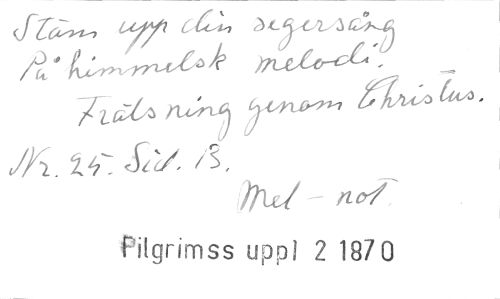 Stäm upp din segersång
På himmelsk melodi.
Frälsning genom Christus.
Nr. 25. Sid. 13.
Mel - not.
Pilgrimss uppl 2 1870